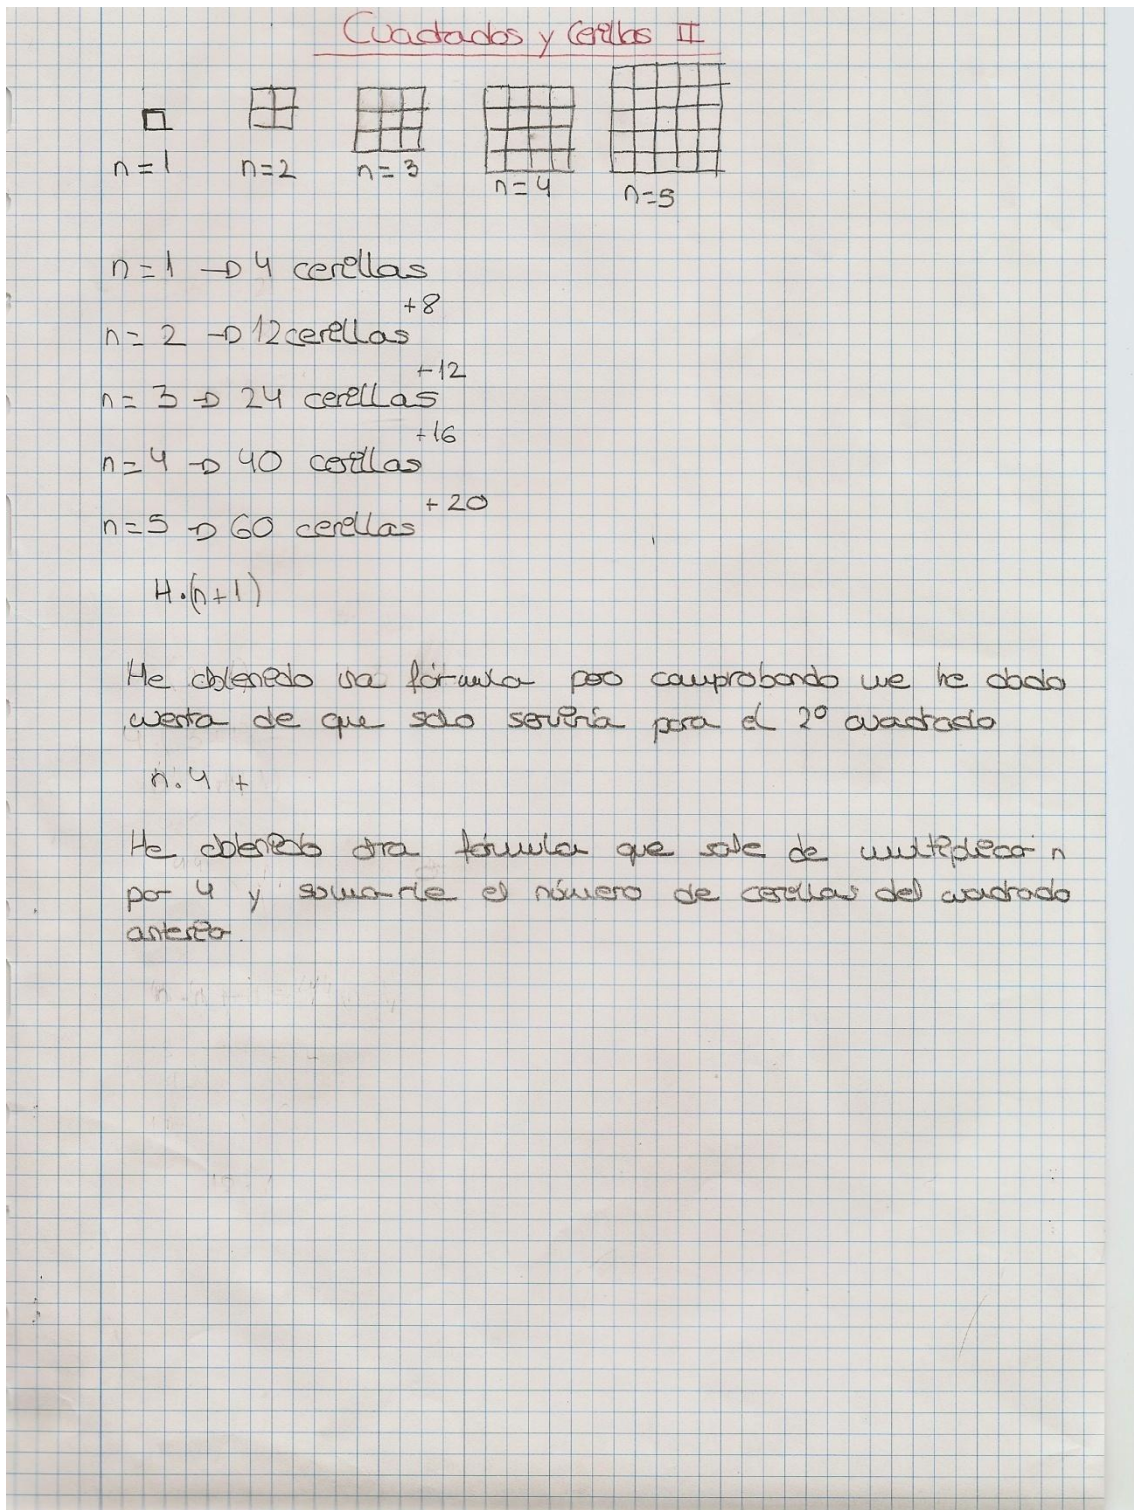 Cuadrados y Cerillas II
n=1 n=2 n=3 n=4 n=5
n=1 → 4 cerillas
+8
n=2 → 12 cerillas
+12
n=3 → 24 cerillas
+16
n=4 → 40 cerillas
+20
n=5 → 60 cerillas
4·(n+1)
He obtenido una fórmula pero comprobando me he dado
cuenta de que solo serviría para el 2º cuadrado
n·4 +
He obtenido otra fórmula que sale de multiplicar n
por 4 y sumarle el número de cerillas del cuadrado
anterior.